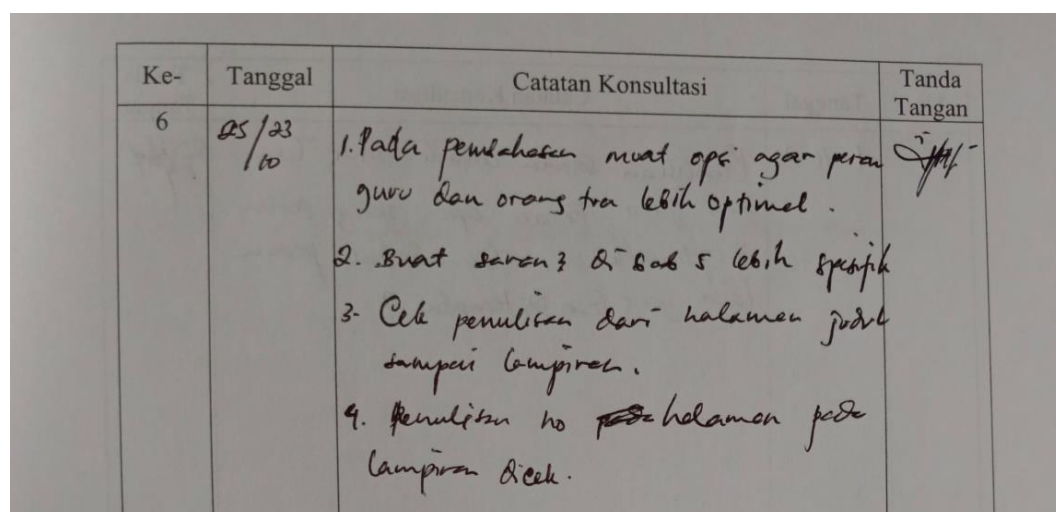 Ke- Tanggal Catatan Konsultasi Tanda Tangan
6 25/23/10 1. Pada pembahasan muat opsi agar peran
guru dan orang tua lebih optimal.
2. Buat saran² di bab 5 lebih spesifik
3. Cek penulisan dari halaman judul
sampai lampiran.
4. Penulisan no halaman pada
lampiran dicek.